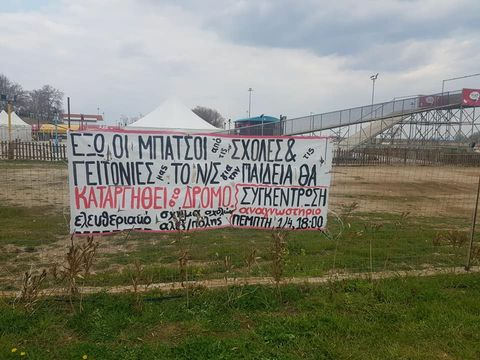 ΕΞΩ ΟΙ ΜΠΑΤΣΟΙ από τις ΣΧΟΛΕΣ &
ΓΕΙΤΟΝΙΕΣ μας ΤΟ ΝΣ για την ΠΑΙΔΕΙΑ ΘΑ
ΚΑΤΑΡΓΗΘΕΙ στο ΔΡΟΜΟ
ΣΥΓΚΕΝΤΡΩΣΗ
ελευθεριακό σχήμα σχολών
αλεξ/πολης
αναγνωστήριο
ΠΕΜΠΤΗ 1/4, 18:00